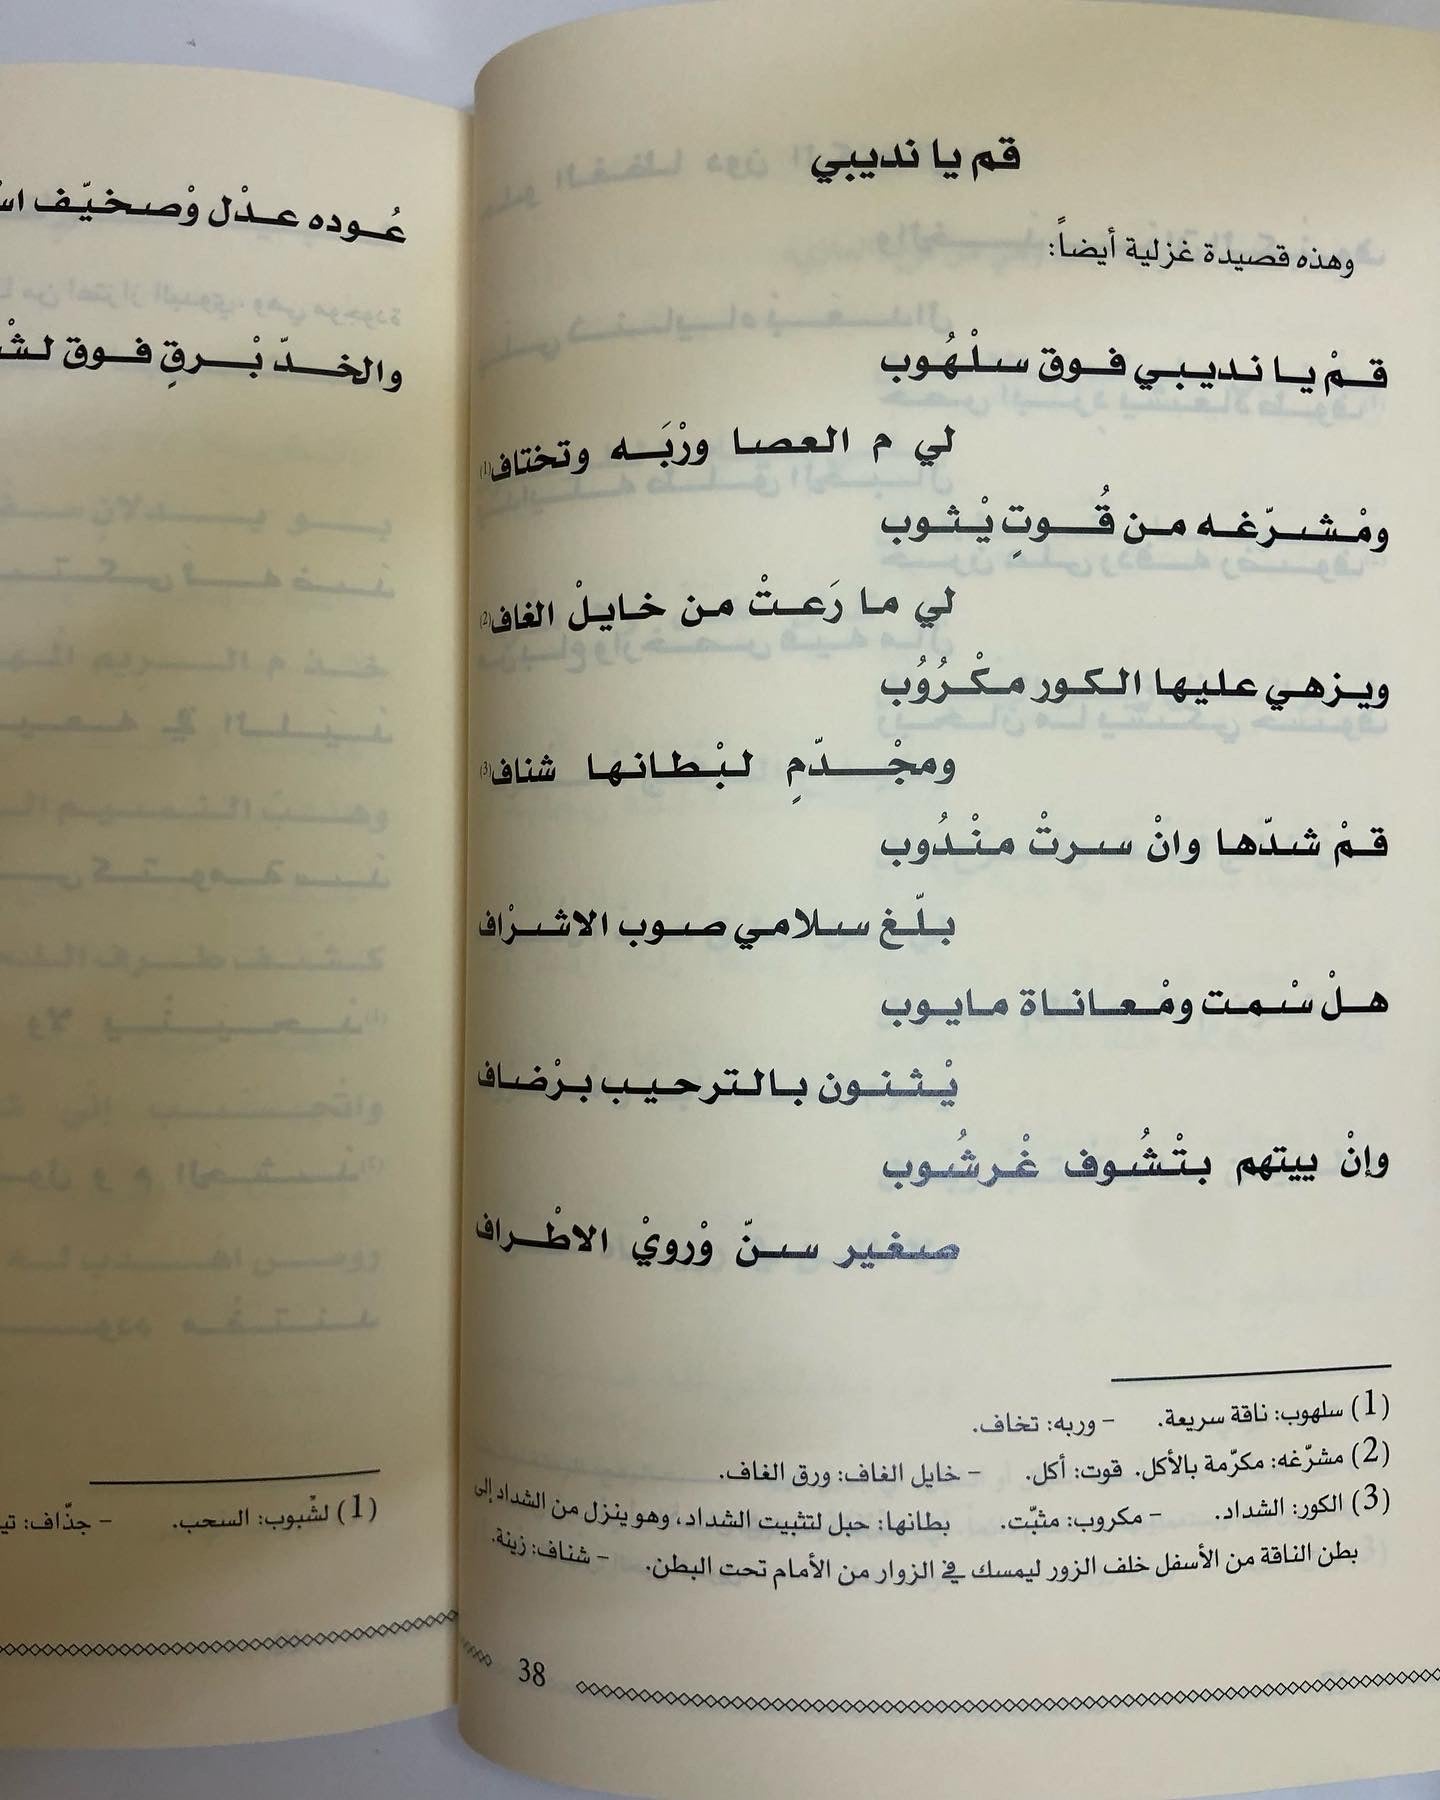 قم يا نديبي
وهذه قصيدة غزلية أيضاً:
قـمْ يـا نديبي فوق سلْهُوب
لي م العصا ورْبَه وتختاف(1)
ومْشرّغه من قُوتِ يْثوب
لي ما رَعتْ من خايلْ الغاف(2)
ويزهي عليها الكور مكْرُوُب
ومجْدّمٍ لبْطانها شناف(3)
قمْ شدّها وانْ سرتْ منْدُوب
بلّغ سلامي صوب الاشرْاف
هلْ سْمت ومْعاناة مايوب
يْثنون بالترحيب برْضاف
وإنْ ييتهم بتْشُوف غْرشُوب
صغير سنّ وْرويْ الاطْراف
(1) سلهوب: ناقة سريعة. - وربه: تخاف.
(2) مشرّغه: مكرّمة بالأكل. قوت: أكل. - خايل الغاف: ورق الغاف.
(3) الكور: الشداد. - مكروب: مثبّت. بطانها: حبل لتثبيت الشداد، وهو ينزل من الشداد إلى
بطن الناقة من الأسفل خلف الزور ليمسك في الزوار من الأمام تحت البطن. - شناف: زينة.
38
عُوده عدْل وْصخيّف
والخدّ بْرقٍ فوق
(1) لشْبوب: السحب. - جذّاف: